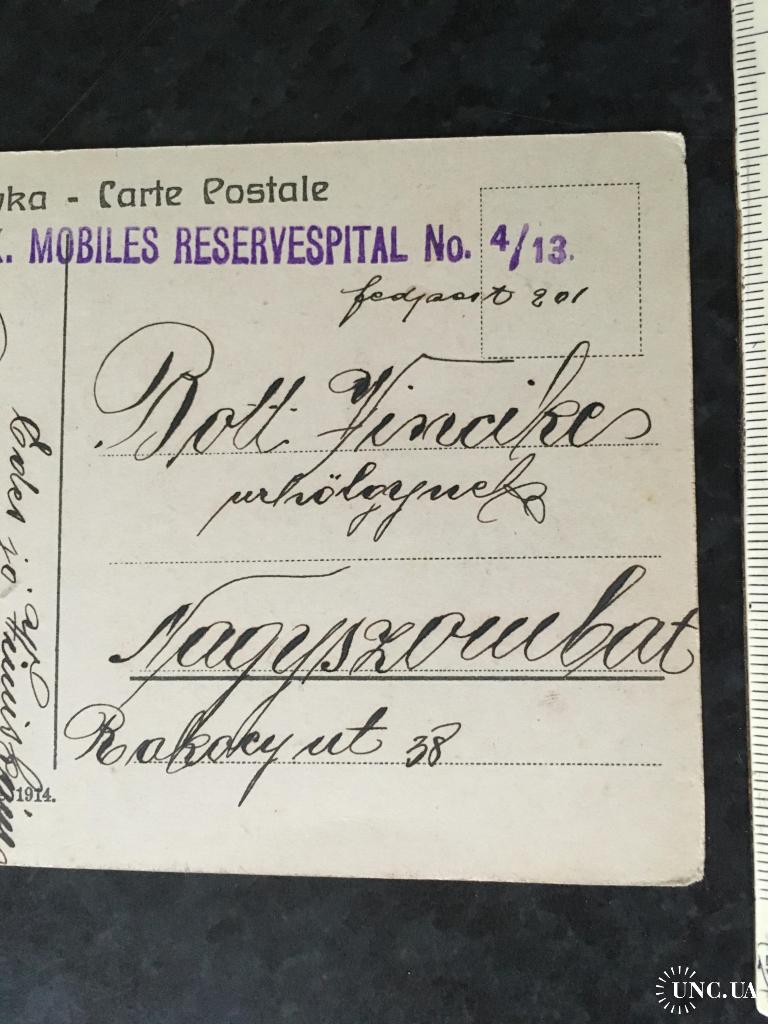 ka - Carte Postale
K. MOBILES RESERVESPITAL No. 4/13.
fedpost 201
Bott Vincike
urhölgynek
Nagyszombat
Rakocy ut 38
Edes jó
1914.
UNC.UA